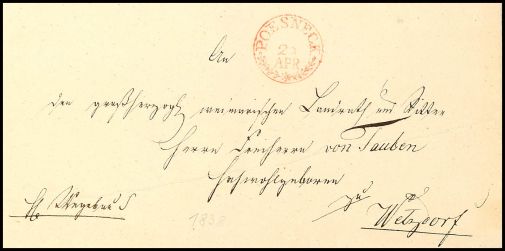 POESNECK
25
APR
An
den großherzogl. weimarischen Landrath und Ritter
Herrn Freiherrn von Tauben
Hochwohlgeboren
zu
Wetzdorf
1838